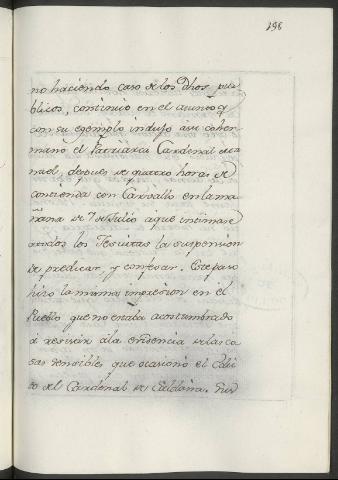 198
no haciendo caso de los Dhos pu-
blicos, continuò en el asunto, y
con su egemplo indujo à su coher-
mano el Patriarca Cardenal
despues de quatro horas de
contienda con Carvallo en la ma-
ñana de 7 de Julio à que intimase
à todos los Jesuitas la suspension
de predicar, y confesar. Este paso
hizo la misma impresion en el
Pueblo que no estaba acostumbrado
à resistir à la evidencia de las co
sas sensibles que ocasionò el Edic
to del Cardenal de Saldaña.